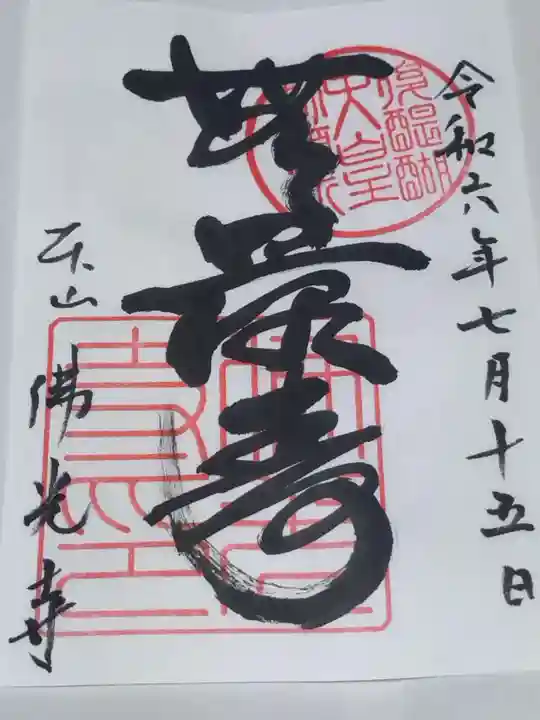 令和六年七月十五日
無量寿
本山
佛光寺
後醍醐
天皇